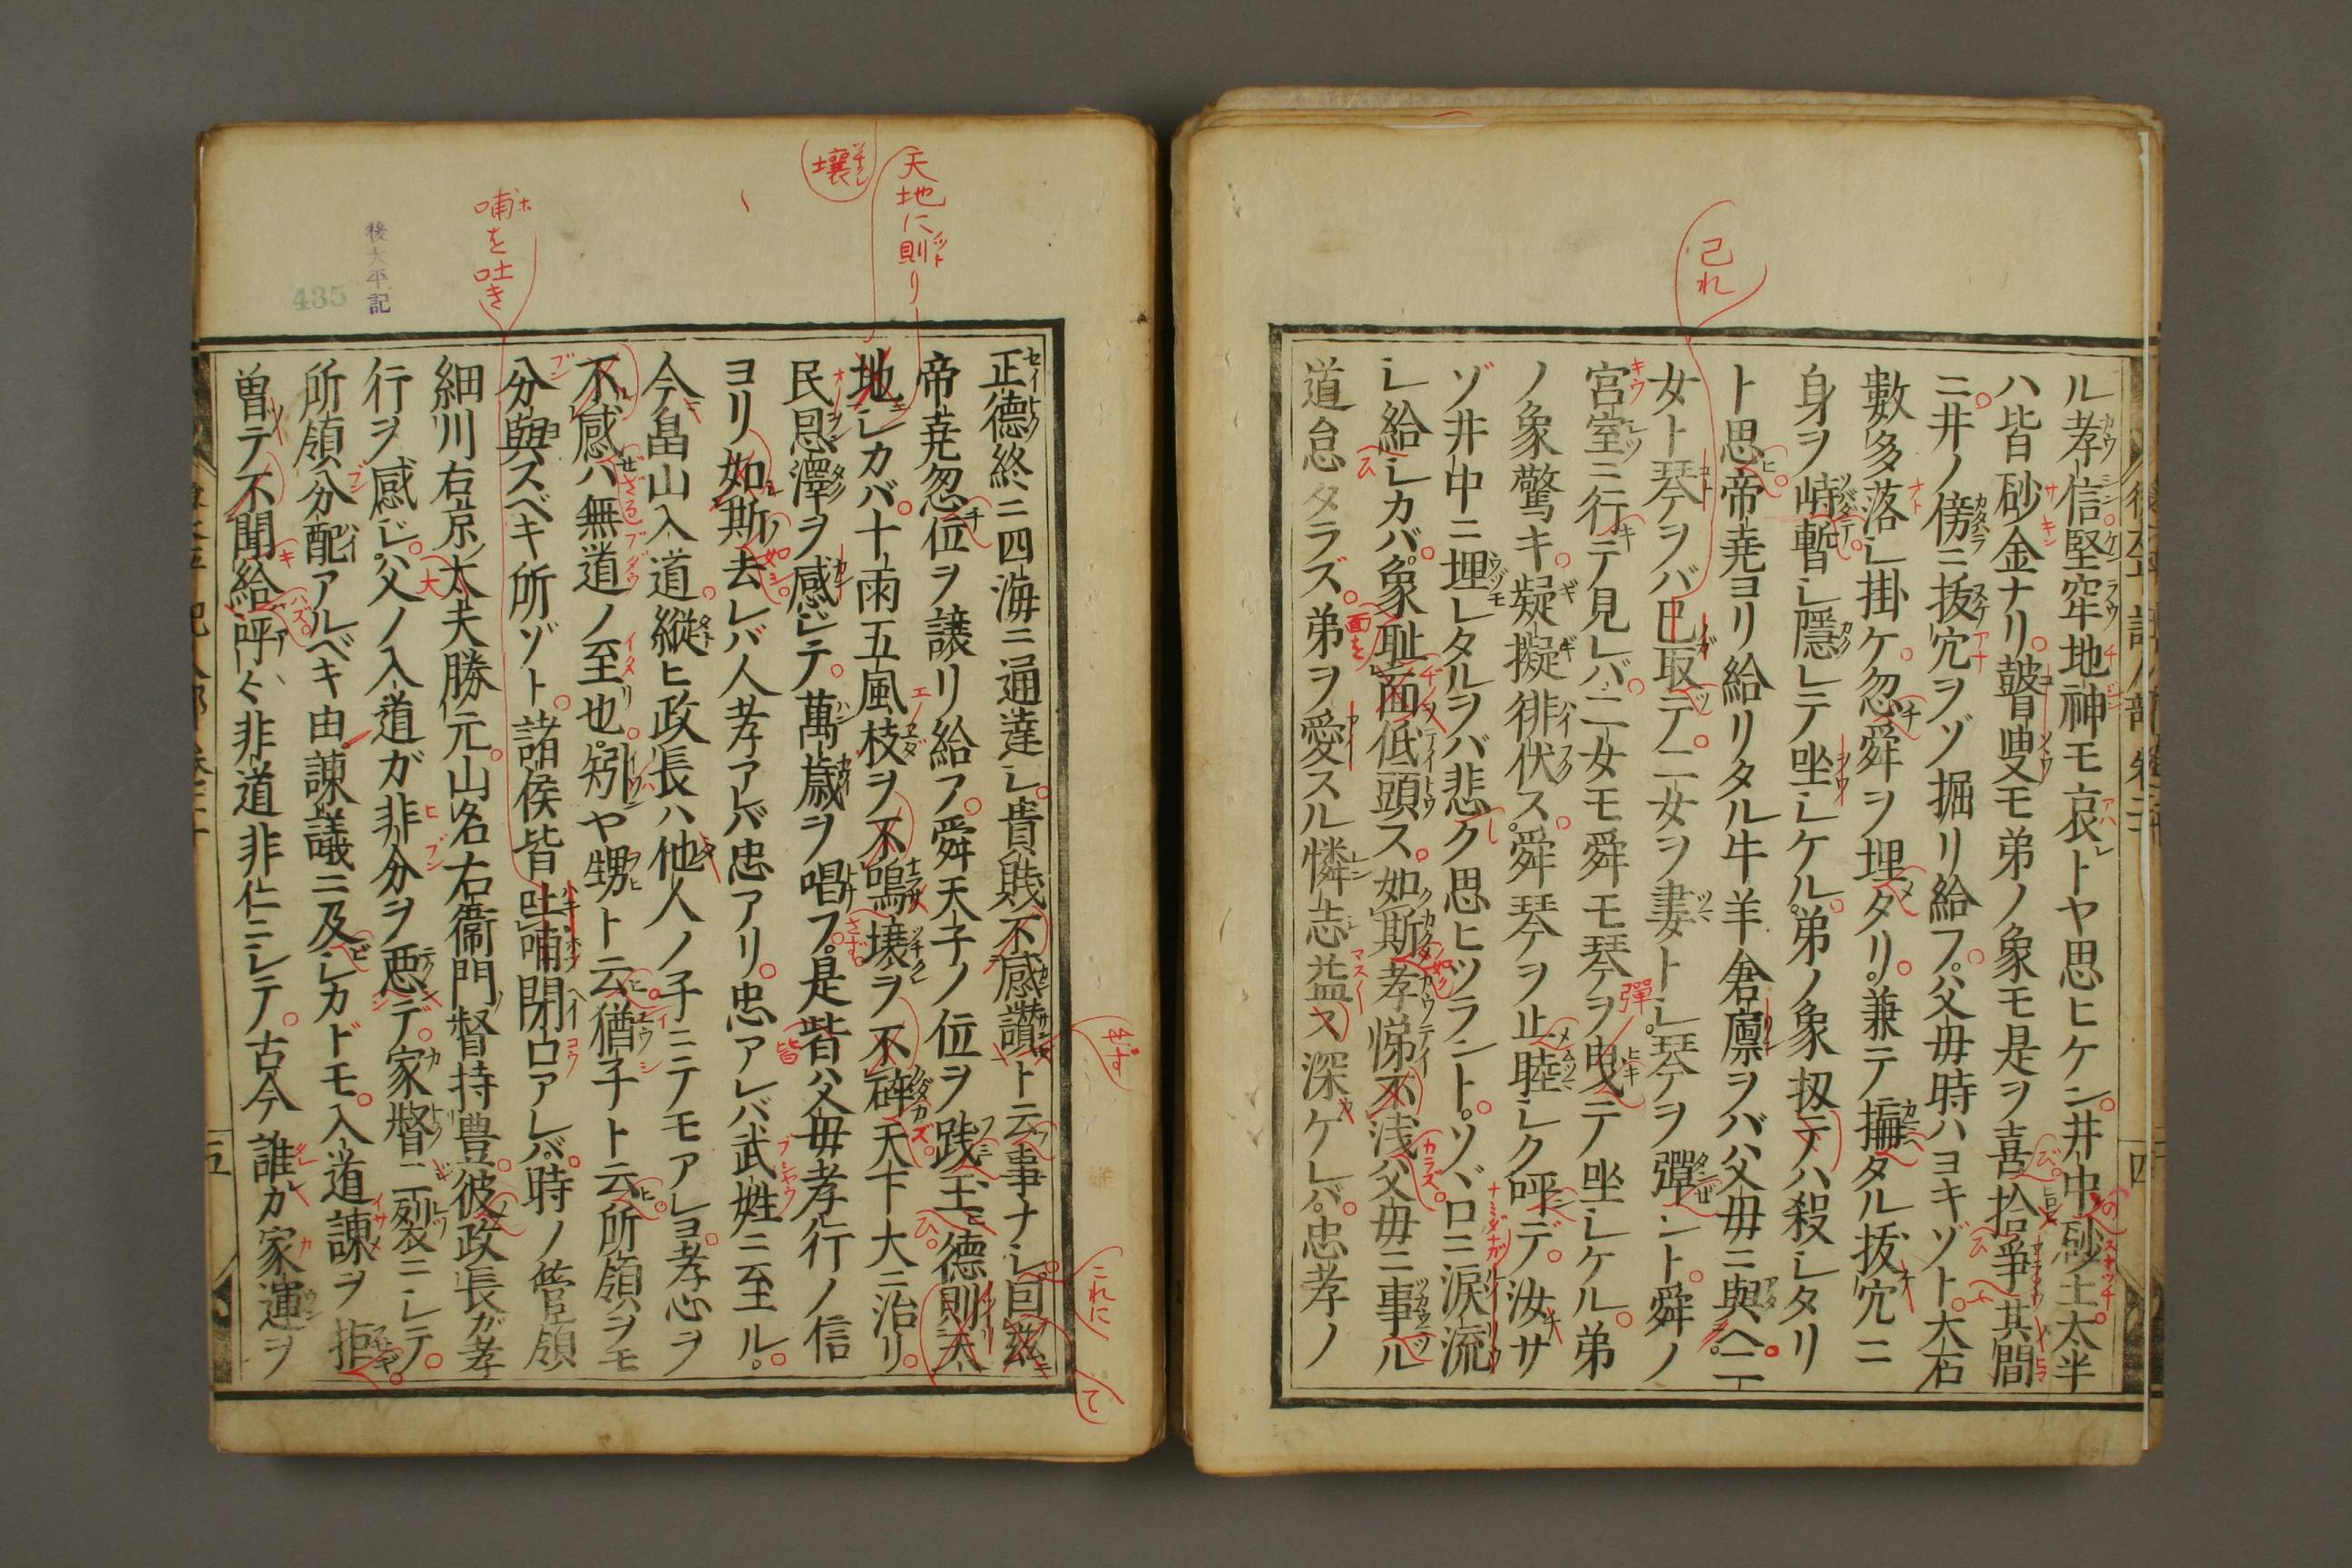 己れ
ル孝信堅牢地神モ哀トヤ思ヒケン井中砂土太半
ハ皆砂金ナリ瞽叟モ弟ノ象モ是ヲ喜拾爭其間
ニ井ノ傍ニ抜穴ヲゾ掘リ給フ父母時ハヨキゾト大石
數多落シ掛ケ忽舜ヲ埋タリ兼テ搆タル抜穴ニ
身ヲ峙暫シ隱レテ坐シケル弟ノ象扨テハ殺シタリ
ト思帝尭ヨリ給リタル牛羊倉廪ヲバ父母ニ與ヘ二
女ト琴ヲバ己取テ二女ヲ妻トシ琴ヲ彈ント舜ノ
宮室ニ行テ見レバ二女モ舜モ琴ヲ曳テ坐シケル弟
ノ象驚キ疑擬徘伏ス舜琴ヲ止睦シク呼デ汝サ
ゾ井中ニ埋レタルヲバ悲ク思ヒツラントソヾロニ淚流
シ給シカバ象耻面低頭ス如斯孝悌不浅父母ニ事ル
道怠タラズ弟ヲ愛スル憐志益ス深ケレバ忠孝ノ
天地に則り
壤
哺を吐き
後太平記
435
正德終ニ四海ニ通達シ貴賎不感讃ト云事ナシ曰茲
帝尭忽位ヲ讓リ給フ舜天子ノ位ヲ践玉ニ德則天
地シカバ十雨五風枝ヲ不鳴壤ヲ不碎天下大ニ治リ
民恩澤ヲ感ジテ萬歳ヲ唱フ是皆父母孝行ノ信
ヨリ如斯去レバ人孝アレバ忠アリ忠アレバ武姓ニ至ル
今畠山入道縱ヒ政長ハ他人ノ子ニテモアレヨ孝心ヲ
不感ハ無道ノ至也矧ヤ甥ト云猶子ト云所領ヲモ
分與スベキ所ゾト諸侯皆吐哺閉口アレバ時ノ管領
細川右京太夫勝元山名右衞門督持豊彼政長ガ孝
行ヲ感ジ父ノ入道ガ非分ヲ惡デ家督二裂ニシテ
所領分配アルベキ由諫議ニ及シカドモ入道諫ヲ拒
曽テ不聞給呼々非道非仁ニシテ古今誰カ家運ヲ
せず
これに
て
五